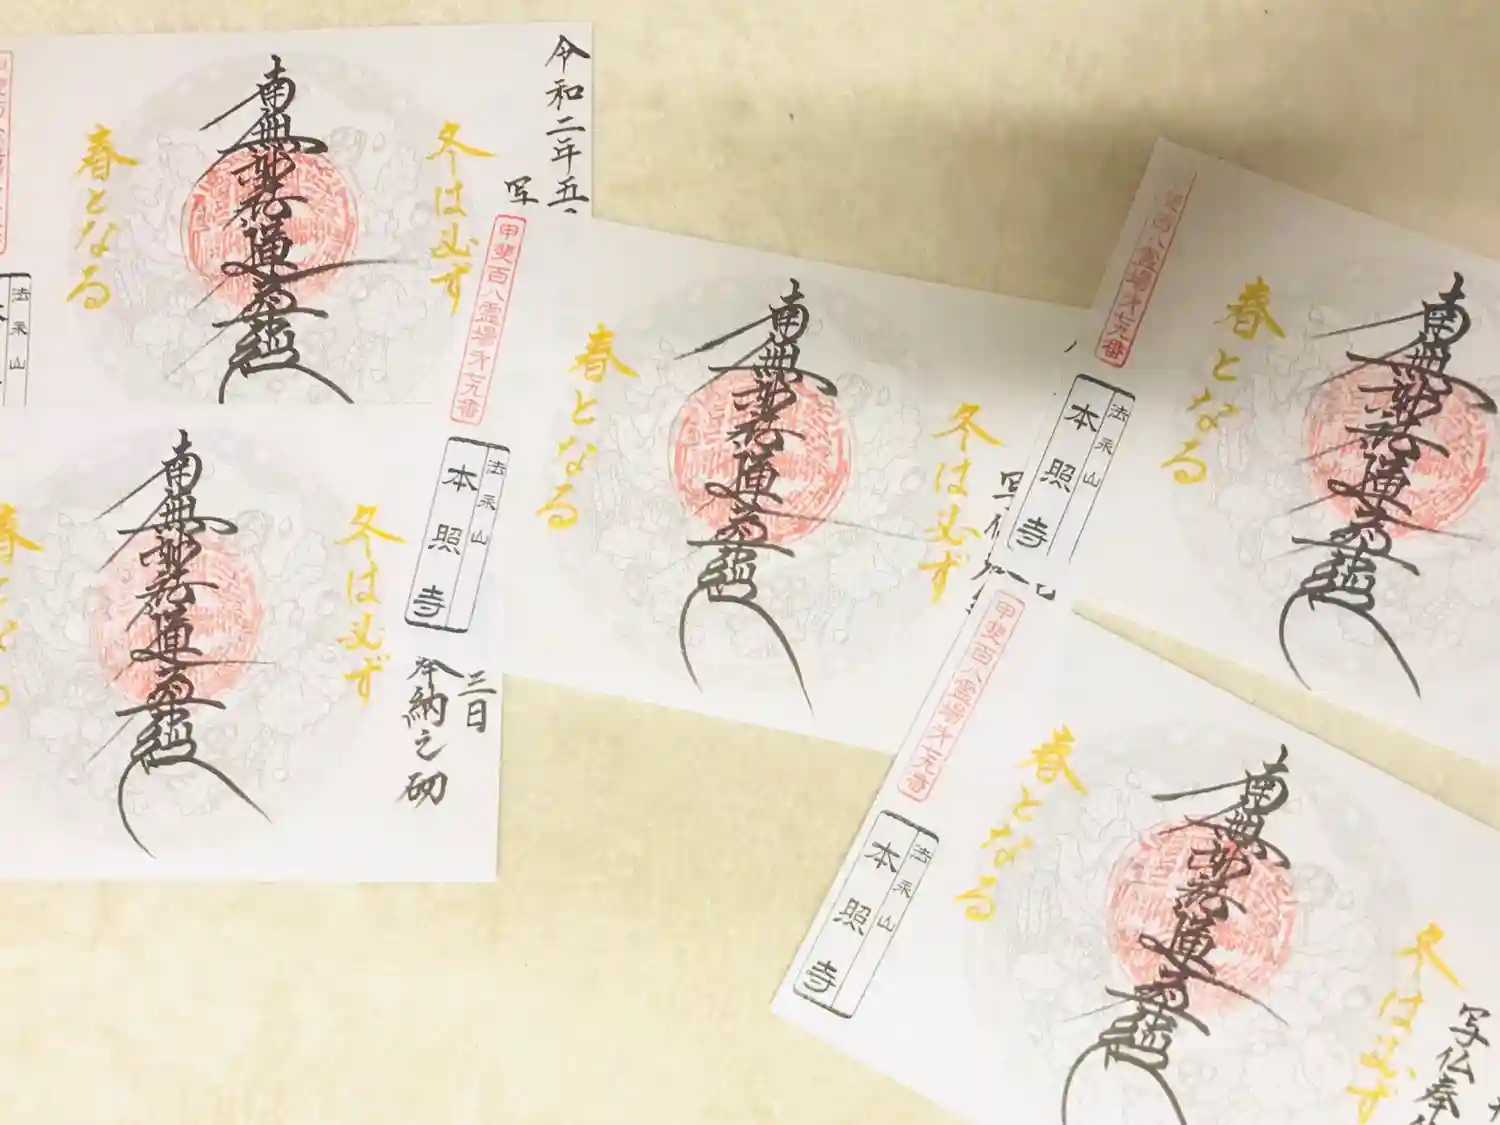 令和二年五
写
冬は必ず
南無妙法蓮華経
春となる
法永山
甲斐百八霊場第七九番
法永山
本照寺
冬は必ず
南無妙法蓮華経
春となる
三日
奉納之砌
冬は必ず
南無妙法蓮華経
春となる
百八霊場第七九番
法永山
本照寺
南無妙法蓮華経
春となる
甲斐百八霊場第七九番
法永山
本照寺
写仏奉
冬は必ず
南無妙法蓮華経
春となる